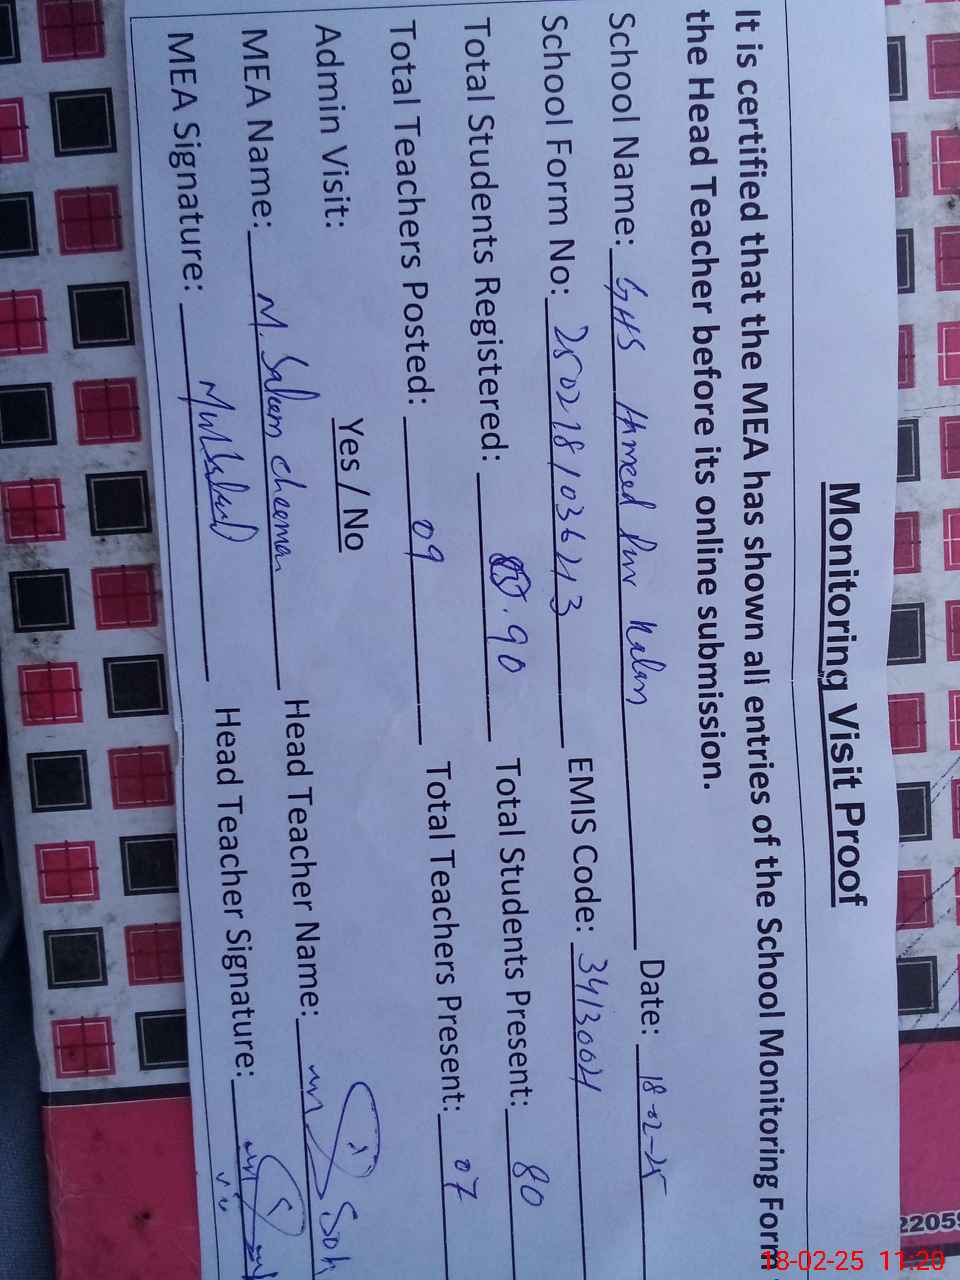 Monitoring Visit Proof
It is certified that the MEA has shown all entries of the School Monitoring Form
the Head Teacher before its online submission.
School Name: GHS Hameed Pur Kalan Date: 18-02-25
School Form No: 250218/036213 EMIS Code: 34130024
Total Students Registered: 90 Total Students Present: 80
Total Teachers Posted: 09 Total Teachers Present: 07
Admin Visit: Yes / No
MEA Name: M. Saleem cheema Head Teacher Name:
MEA Signature: Head Teacher Signature:
2205
18-02-25 11:20